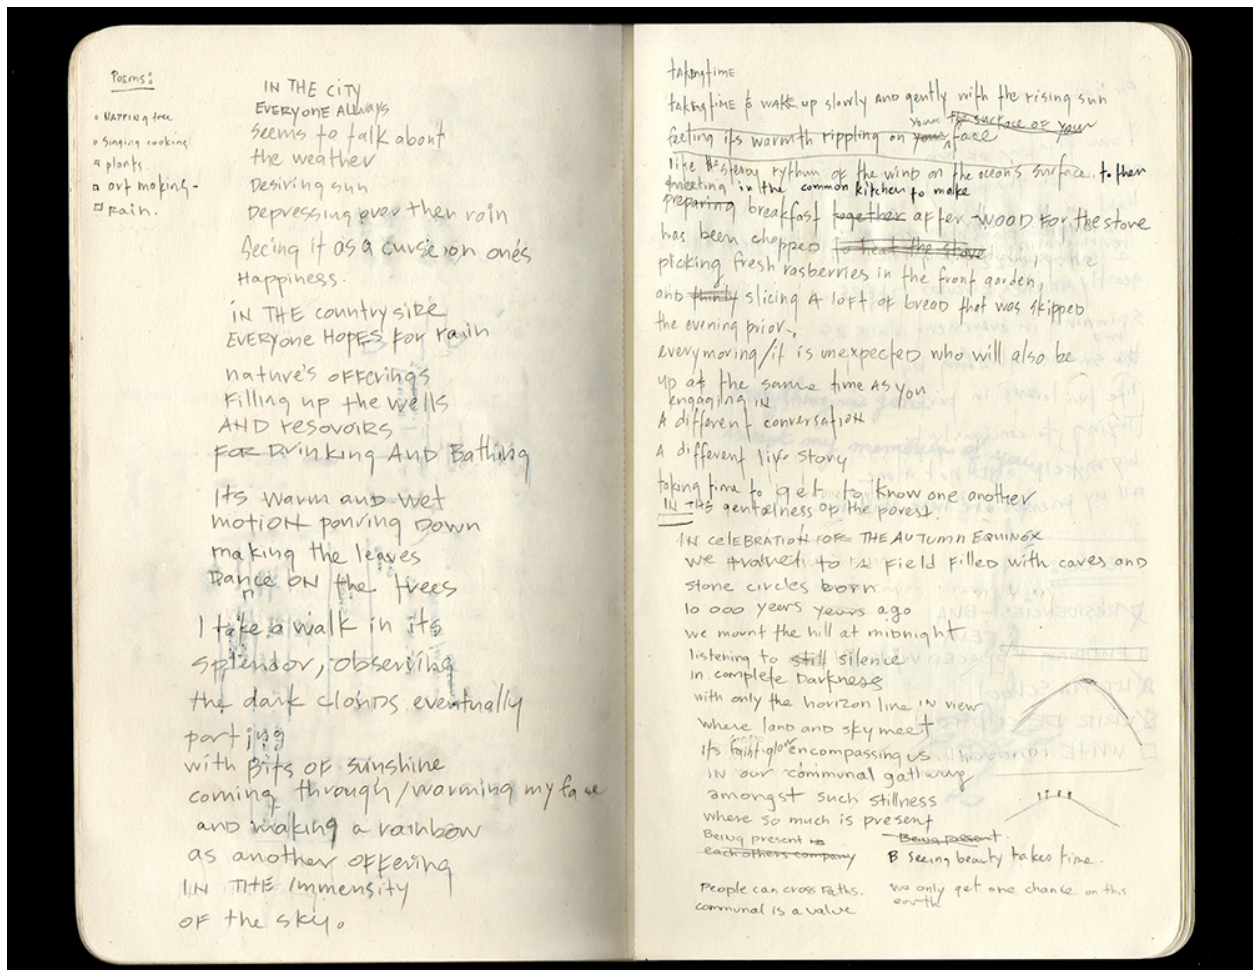 Poems:
NAPPING tree
singing cooking
plants.
art making-
rain.
IN THE CITY
EVERYONE Always
seems to talk about
the weather
Desiring sun
Depressing over then rain
Seeing it as a curse on one's
Happiness.
IN THE country side
EVERYone HOPES For rain
nature's OFFERINGS
Filling up the wells
AND resovoirs
FOR Drinking AND Bathing
Its warm and wet
motion pouring DOWN
making the leaves
Dance ON the trees
I take a walk in its
splendor, observing
the dark clouds eventually
parting
with Bits of sunshine
coming through/warming my face
and making a rainbow
as another offering
IN THE Immensity
OF the sky.
taking time
taking time to wake up slowly AND gently with the rising sun
your the surface of your
feeling its warmth rippling on your face
like the steady rythum of the wind on the ocean's surface. to then
meeting in the common kitchen to make
preparing breakfast together after WOOD FOR the stove
has been chopped to heat the stove
picking fresh rasberries in the front garden,
and thinly slicing A loft of bread that was skipped
the evening prior.
every moring/it is unexpected who will also be
up at the same time AS you.
engaging IN
A different conversation
A different life story
taking time to get to know one another
IN THE gentelness OF the forest.
IN CELEBRATION OF THE AUTUMN EQUINOX
we travel to a FIELD FILLED with caves and
stone circles born
10 000 years years ago
we mount the hill at midnight
listening to still silence
in complete Darkness
with only the horizon line IN view
where land and sky meet
its faint glow encompassing us
in our communal gathering
amongst such stillness
where so much is present
Being present in
Being present.
each others company
B seeing beauty takes time.
People can cross Paths.
communal is a value
we only get one chance on this
earth